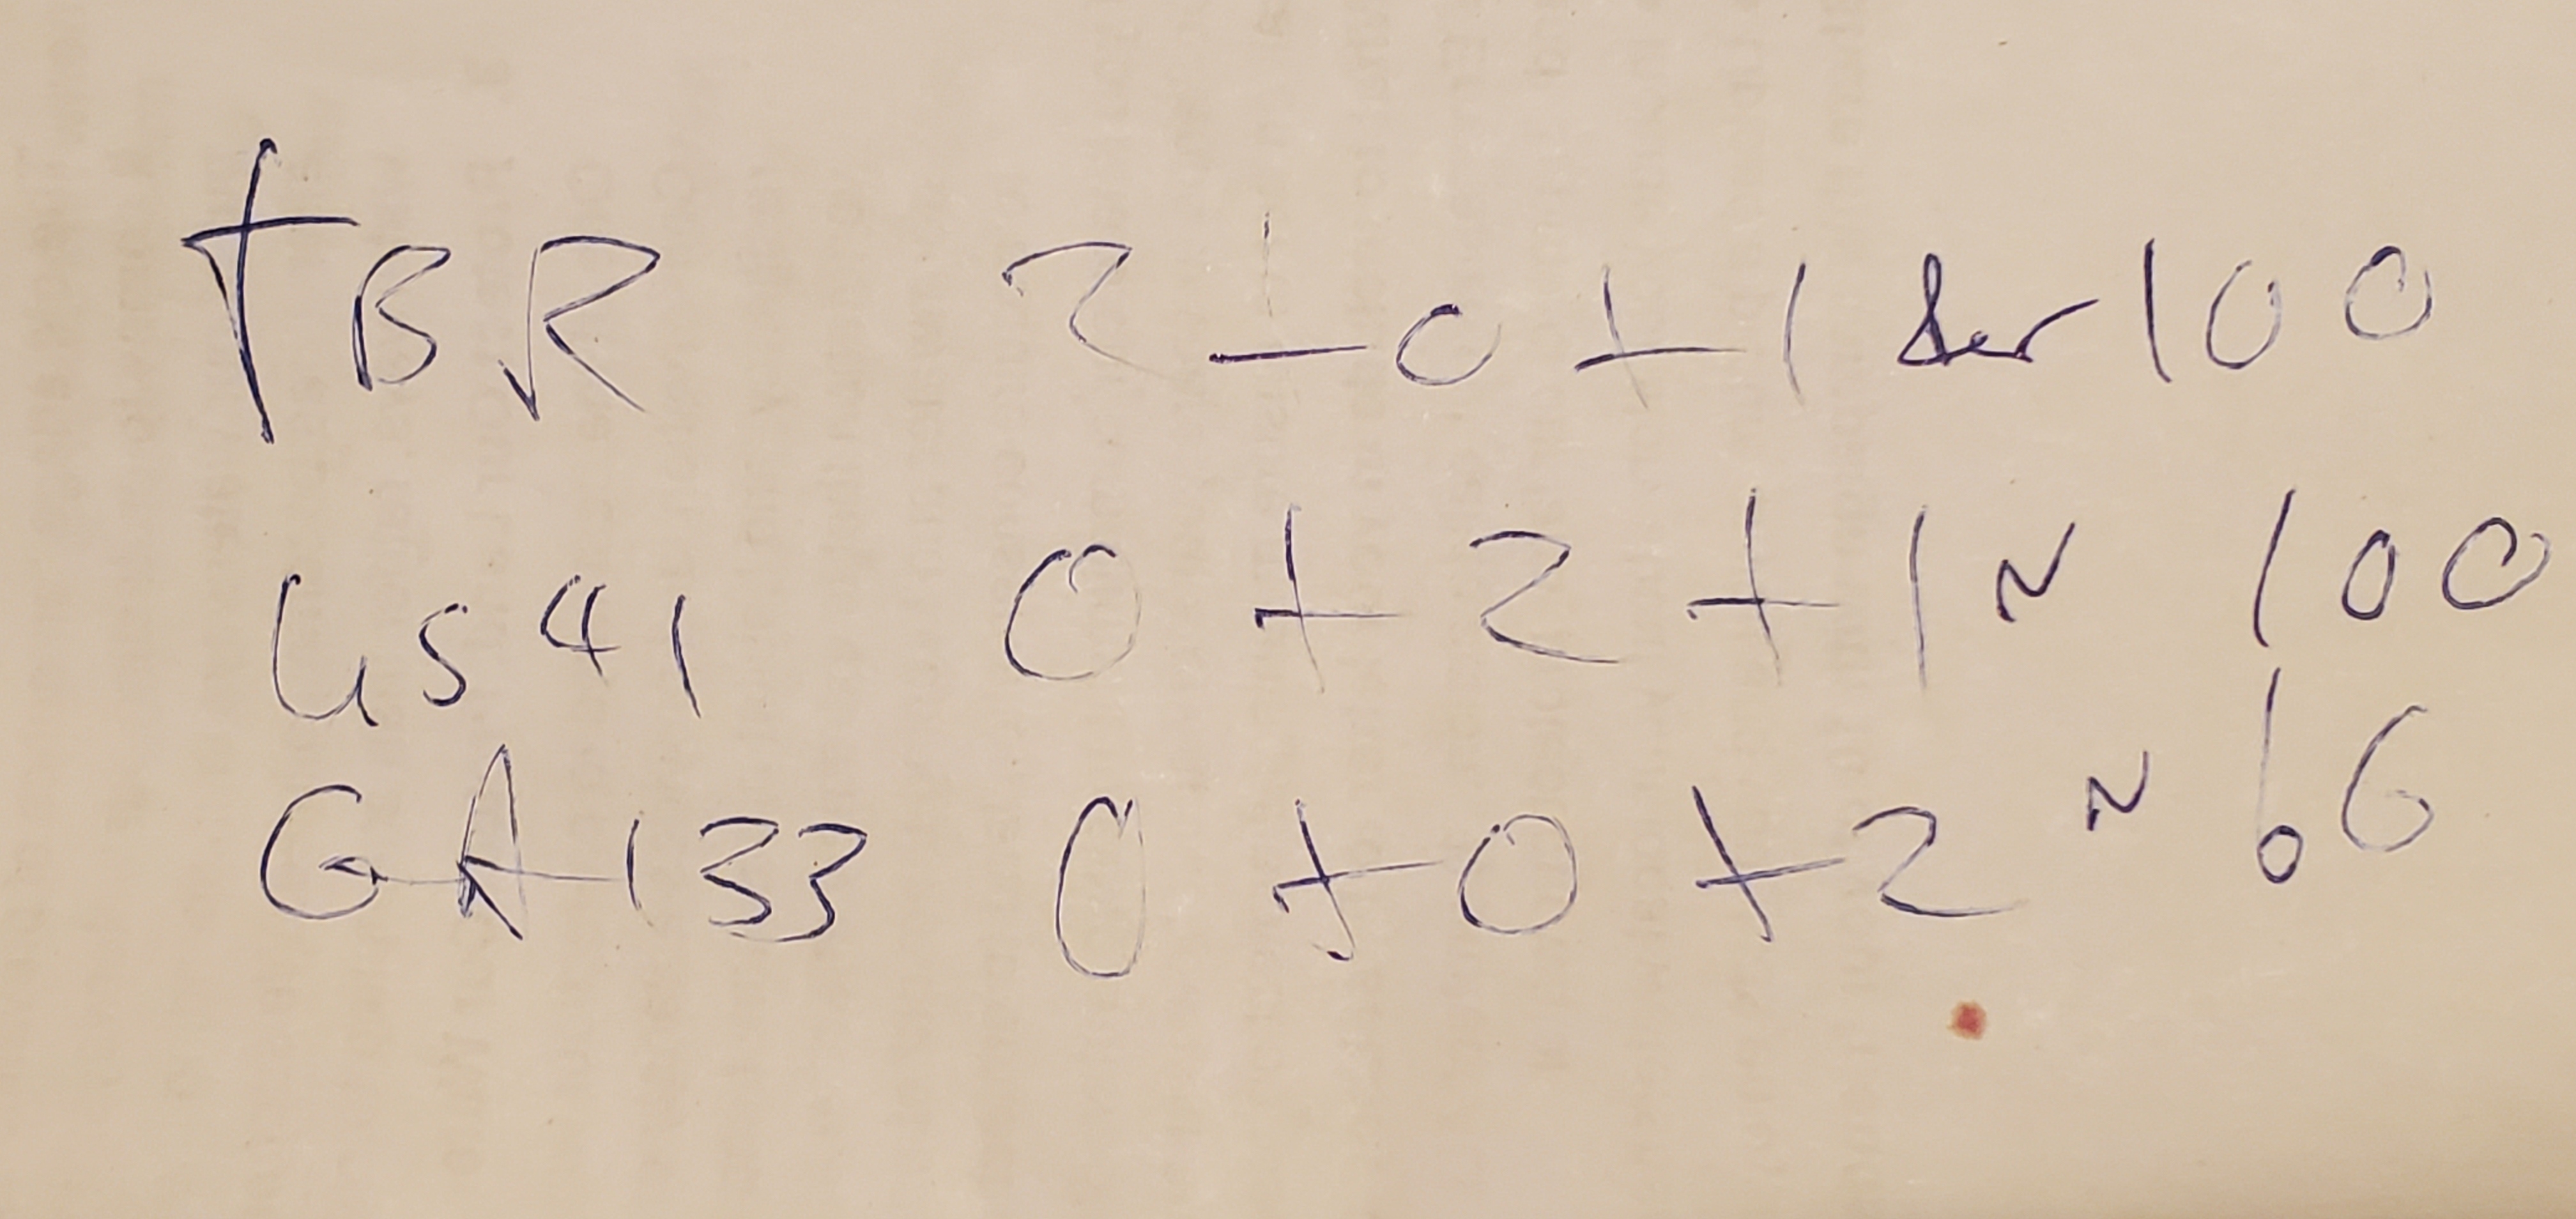 TBR 2+0+1 der 100
US41 0+2+1 ~ 100
GA133 0+0+2 ~ 66